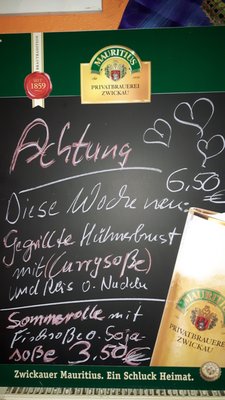 BRAUTRADITION
SEIT
1859
MAURITIUS
PRIVATBRAUEREI
ZWICKAU
Achtung
6,50 €
Diese Woche neu:
Gegrillte Hühnerbrust
mit (Currysoße)
und Reis o. Nudeln
Sommerrolle mit
Fischsoße o. Soja-
soße 3,50€
MAURITIUS
PRIVATBRAUEREI
ZWICKAU
Zwickauer Mauritius. Ein Schluck Heimat.